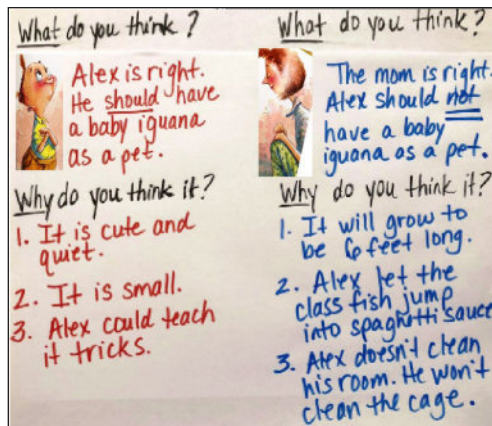 What do you think?
Alex is right.
He should have
a baby iguana
as a pet.
Why do you think it?
1. It is cute and
quiet.
2. It is small.
3. Alex could teach
it tricks.
What do you think?
The mom is right.
Alex should not
have a baby
iguana as a pet.
Why do you think it?
1. It will grow to
be 6 feet long.
2. Alex let the
class fish jump
into spaghetti sauce
3. Alex doesn't clean
his room. He won't
clean the cage.